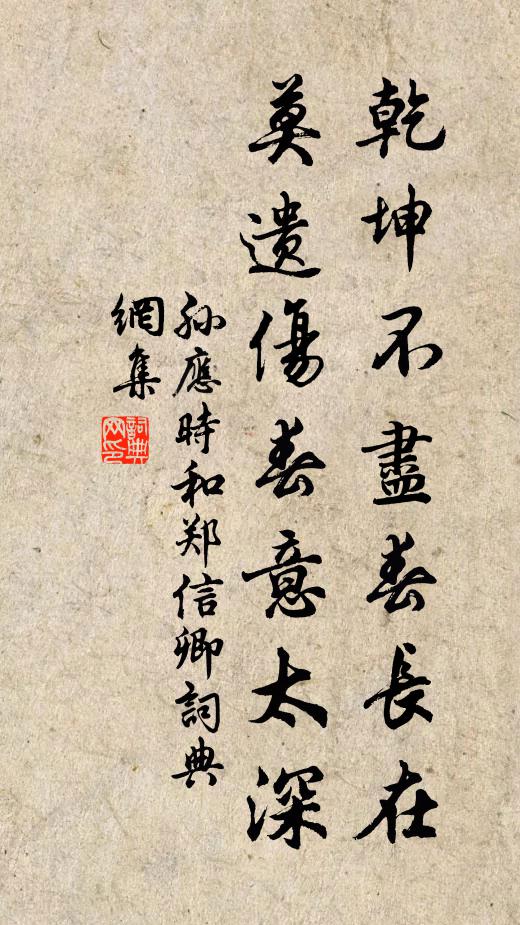 乾坤不盡春長在
莫遺傷春意太深
孫應時和郑信卿詞典
網集
詞典
网印